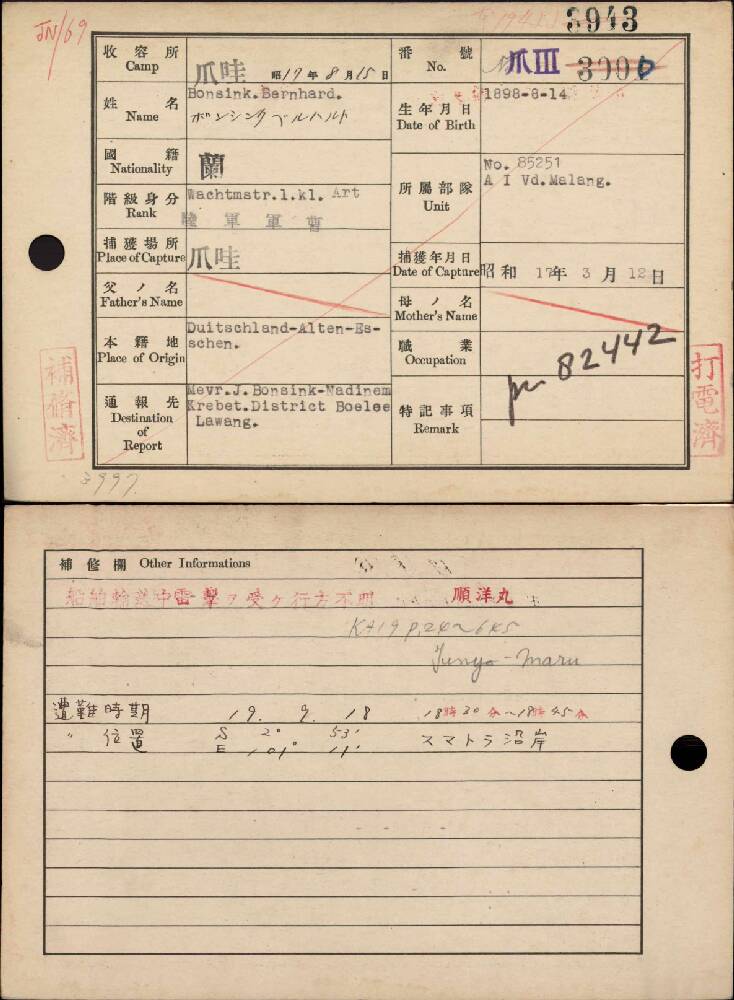 JN/69
3943
收容所
Camp
爪哇 昭17年8月15日
番號
No.
爪III 3000
姓名
Name
Bonsink.Bernhard.
ボンシンクベルハルト
生年月日
Date of Birth
1898-8-14
國籍
Nationality
蘭
所屬部隊
Unit
No. 85251
A I Vd.Malang.
階級身分
Rank
Wachtmstr.1.kl. Art
陸軍軍曹
捕獲場所
Place of Capture
爪哇
捕獲年月日
Date of Capture
昭和 17年 3月 12日
父ノ名
Father's Name
母ノ名
Mother's Name
本籍地
Place of Origin
Duitschland-Alten-Es-
schen.
職業
Occupation
82442
通報先
Destination
of
Report
Mevr.J.Bonsink-Nadinem
Krebet.District Boelee
Lawang.
特記事項
Remark
補脩濟
打電濟
3997
補脩欄 Other Informations
船舶輸送中雷擊ヲ受ケ行方不明 順洋丸
Junyo-maru
遭難時期 19. 9. 18 18時30分～18時45分
〃 位置 S 2° 53' スマトラ沿岸
E 101° 11'